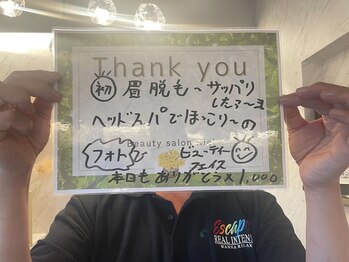 Thank you
初 眉脱毛〜サッパリ
したァ〜ヨ
ヘッドスパでほっこり〜の
Beauty salon
フォトで ビューティー
フェイス
本日もありがとう×1,000
Escap
REAL INTEN
WANNA RELAX